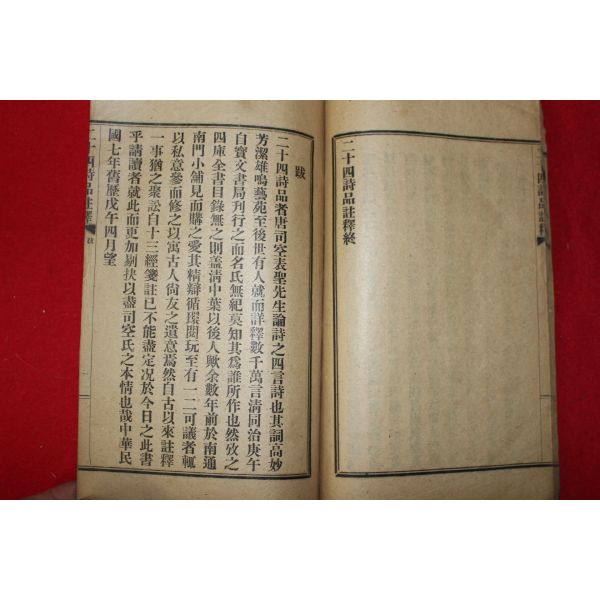 二十四詩品註釋終
二十四詩品註釋
跋
二十四詩品者唐司空表聖先生論詩之四言詩也其詞高妙
芳潔雄鳴藝苑至後世有人就而詳釋數千萬言清同治庚午
自寶文書局刊行之而名氏無紀莫知其爲誰所作也然攷之
四庫全書目錄無之則盖淸中葉以後人歟余數年前於南通
南門小舖見而購之愛其精辯循環閱玩至有一二可議者輒
以私意參而修之以寓古人尙友之遺意焉然自古以來註釋
一事猶之聚訟自十三經箋註已不能盡定况於今日之此書
乎請讀者就此而更加剔抉以盡司空氏之本情也哉中華民
國七年舊歷戊午四月望
二十四詩品註釋
跋